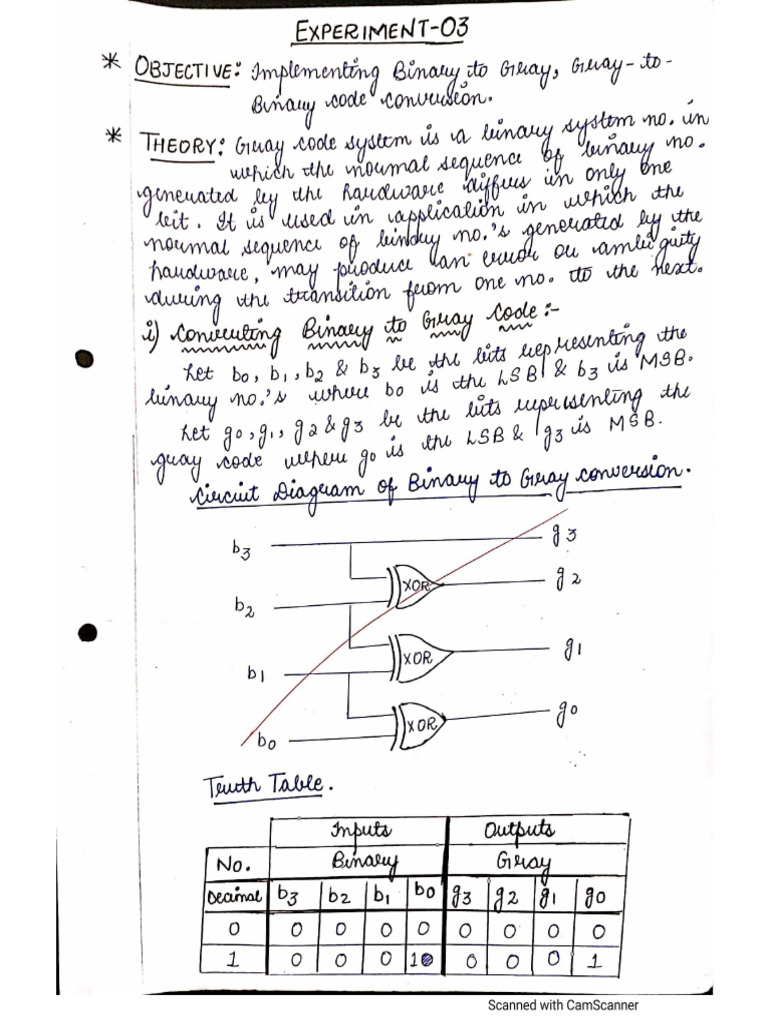 EXPERIMENT-03
* OBJECTIVE: Implementing Binary to Gray, Gray-to-
Binary code conversion.
* THEORY: Gray code system is a binary system no. in
which the normal sequence of binary no.
generated by the hardware differs in only one
bit. It is used in application in which the
normal sequence of binary no.'s generated by the
hardware, may produce an error or ambiguity
during the transition from one no. to the next.
i) Converting Binary to Gray Code:-
Let b0, b1, b2 & b3 be the bits representing the
binary no.'s where b0 is the LSB & b3 is MSB.
Let g0, g1, g2 & g3 be the bits representing the
gray code where g0 is the LSB & g3 is MSB.
Circuit Diagram of Binary to Gray conversion.
b3 g3
XOR g2
b2
XOR g1
b1
XOR g0
b0
Truth Table.
Inputs Outputs
No. Binary Gray
Decimal b3 b2 b1 b0 g3 g2 g1 g0
0 0 0 0 0 0 0 0 0
1 0 0 0 1 0 0 0 1
Scanned with CamScanner